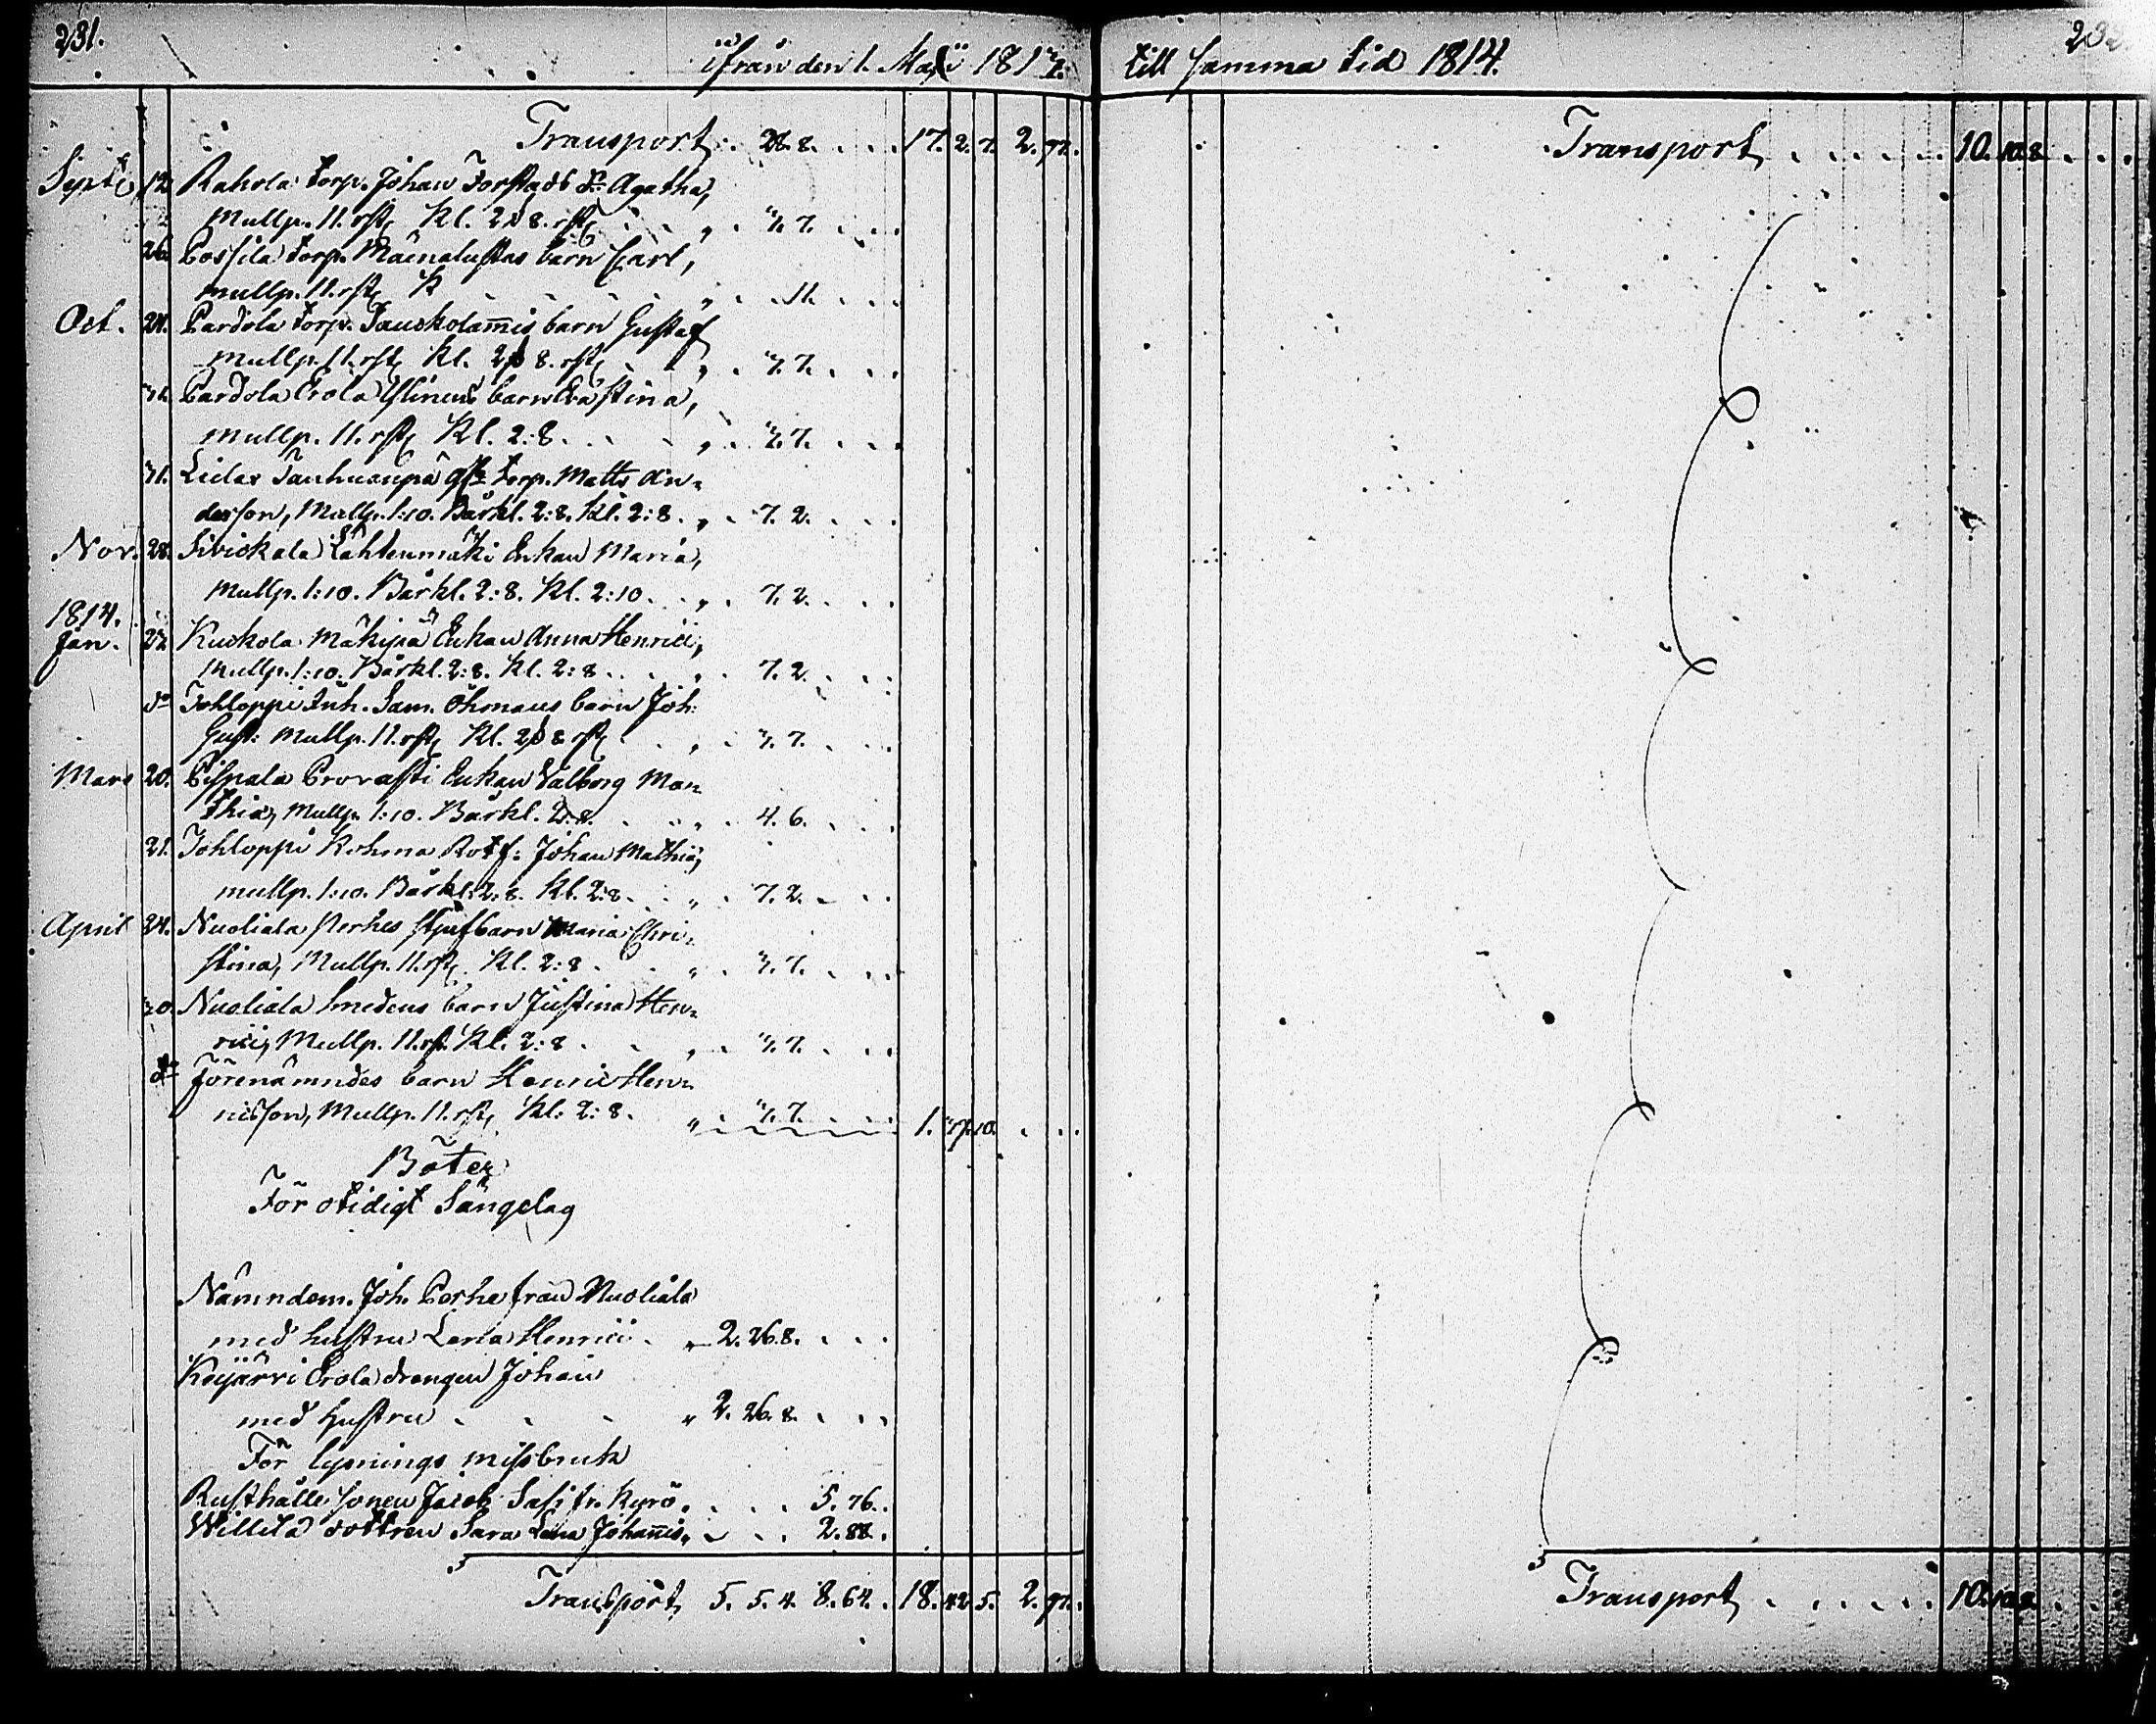 231.
ifrån den 1. Maji 1813.
Transport . 28. 8. . . . 17. 2. 7. 2. 97.
Septe. 12 Rahola torp. Johan Forstads dr Agatha,
Mullp. 11. rst Kl. 2ß 8. rst . . „ . 3. 7. . . .
26. Possila torp. barn Carl,
mullp. 11. rst K . . . . „ . . 11. . . .
Oct. 24. Pardola torp. barn Gustaf
Mullp. 11. rst Kl. 2ß 8. rst . . „ . 3. 7. . . .
31. Pardola Erola barn Eva Stina,
Mullp. 11. rst Kl. 2:8. . . „ . 3. 7. . . .
31. Lielax torp. Matts An-
dersson, Mullp. 1:10. Bårkl. 2:8. Kl. 2:8. „ . 7. 2. . . .
Nov. 28. Sivickala Lähdenmäki Enkan Maria,
Mullp. 1:10. Bårkl. 2:8. Kl. 2:10. . „ . 7. 2. . . .
1814.
Jan. 23 Kuckola Mäkipä Enkan Anna Henrici,
Mullp. 1:10. Bårkl. 2:8. Kl. 2:8 . . „ . 7. 2. . . .
do Tohloppi Inh. Sam. Öhmans barn Joh:
Gust: Mullp. 11. rst Kl. 2ß 8 rst . . „ . 3. 7. . . .
Mars 20. Pispala Provasti Enkan Valborg Mat-
thiæ, Mullp. 1:10. Bårkl. 2:8. . . „ . 4. 6. . . .
21. Tohloppi Kohma Rotf: Johan Mathiæ,
mullp. 1:10. Bårkl. 2:8. Kl. 2:8. . „ . 7. 2. . . .
April 24. Nuoliala Perhes Stjufbarn Maria Chri-
stina, Mullp. 11. rst. Kl. 2:8 . . „ . 3. 7. . . .
30. Nuoliala Smedens barn Justina Hen-
rici, Mullp. 11. rst. Kl. 2:8 . . „ . 3. 7. . . .
do Förenämndes barn Henric Hen-
ricsson, Mullp. 11. rst, Kl: 2:8. „ . 3. 7. . . . 1. 39. 10. . . .
Böter
För otidigt Sängelag
Nämndem. Joh. Perhe från Nuoliala
med hustru Lena Henrici . „ 2. 26. 8. . . .
Koijärvi Erola drengen Johan
med Hustru . . . „ 2. 26. 8. . . .
För lysnings missbruk
Rusthålls sonen Jacob Sasi fr. Kyrö. . . . 5. 76.
Willilä dottren Sara Lena Johannis. . . . 2. 88.
Transport, 5. 5. 4. 8. 64. 18. 42. 5. 2. 97.
232.
till samma tid 1814.
Transport . . . . . 10. 10. 8. . . .
Transport . . . . . 10. 10. 8. . . .